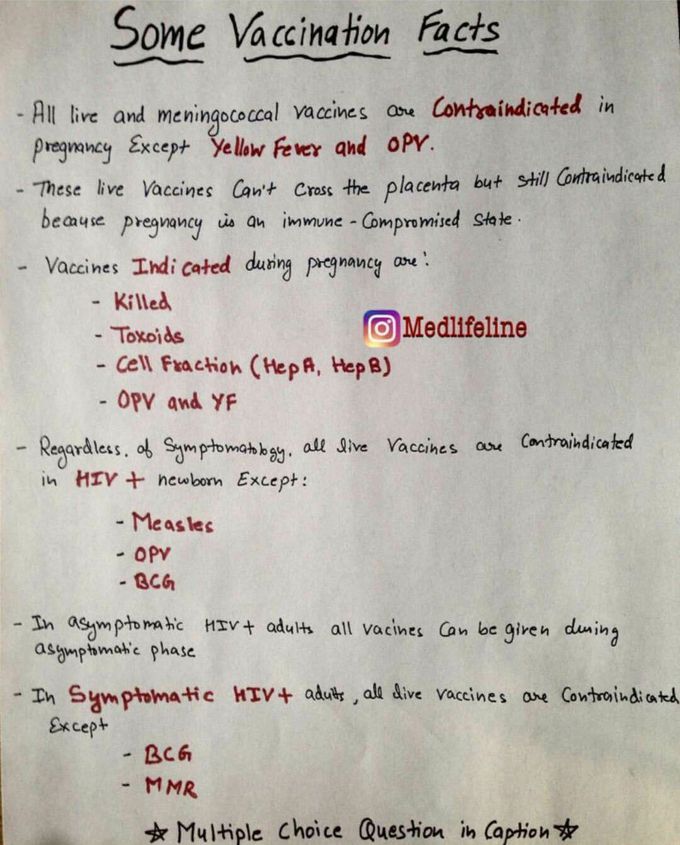 Some Vaccination Facts
- All live and meningococcal vaccines are Contraindicated in
pregnancy Except Yellow Fever and OPV.
- These live Vaccines Can't Cross the placenta but still Contraindicated
because pregnancy is an immune - Compromised State.
- Vaccines Indicated during pregnancy are:
- Killed
- Toxoids
Medlifeline
- Cell Fraction (Hep A, Hep B)
- OPV and YF
- Regardless. of Symptomatology, all live Vaccines are Contraindicated
in HIV + newborn Except:
- Measles
- OPV
- BCG
- In asymptomatic HIV+ adults all vacines Can be given during
asymptomatic phase
- In Symptomatic HIV+ adults, all live vaccines are Contraindicated
Except
- BCG
- MMR
☆ Multiple Choice Question in Caption ☆